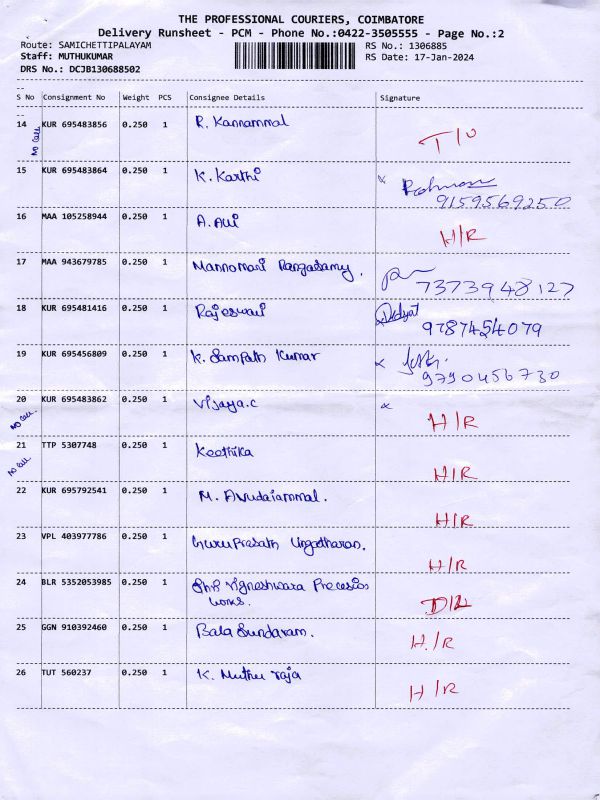 THE PROFESSIONAL COURIERS, COIMBATORE
Delivery Runsheet - PCM - Phone No.:0422-3505555 - Page No.:2
Route: SAMICHETTIPALAYAM RS No.: 1306885
Staff: MUTHUKUMAR RS Date: 17-Jan-2024
DRS No.: DCJB130688502
S No Consignment No Weight PCS Consignee Details Signature
14 KUR 695483856 0.250 1 R. Kannammal
No call
15 KUR 695483864 0.250 1 K. Karthi
9159569250
16 MAA 105258944 0.250 1 A. H/R
17 MAA 943679785 0.250 1 Rangasamy.
7373948127
18 KUR 695481416 0.250 1 Rajeswari
9787454079
19 KUR 695456809 0.250 1 K. Sampath Kumar
9790456730
20 KUR 695483862 0.250 1 Vijaya.c H/R
No call
21 TTP 5307748 0.250 1 Keethika H/R
No call
22 KUR 695792541 0.250 1 M. Avudaiammal. H/R
23 VPL 403977786 0.250 1 Guruprasath H/R
24 BLR 5352053985 0.250 1 Shri Vigneshwara Precesion
works. D/L
25 GGN 910392460 0.250 1 Bala Sundaram. H/R
26 TUT 560237 0.250 1 K. Muthu raja H/R